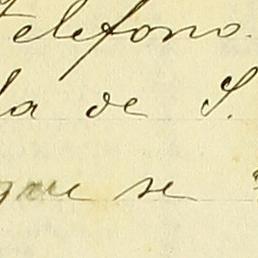 Telefono.
la de S.
que se